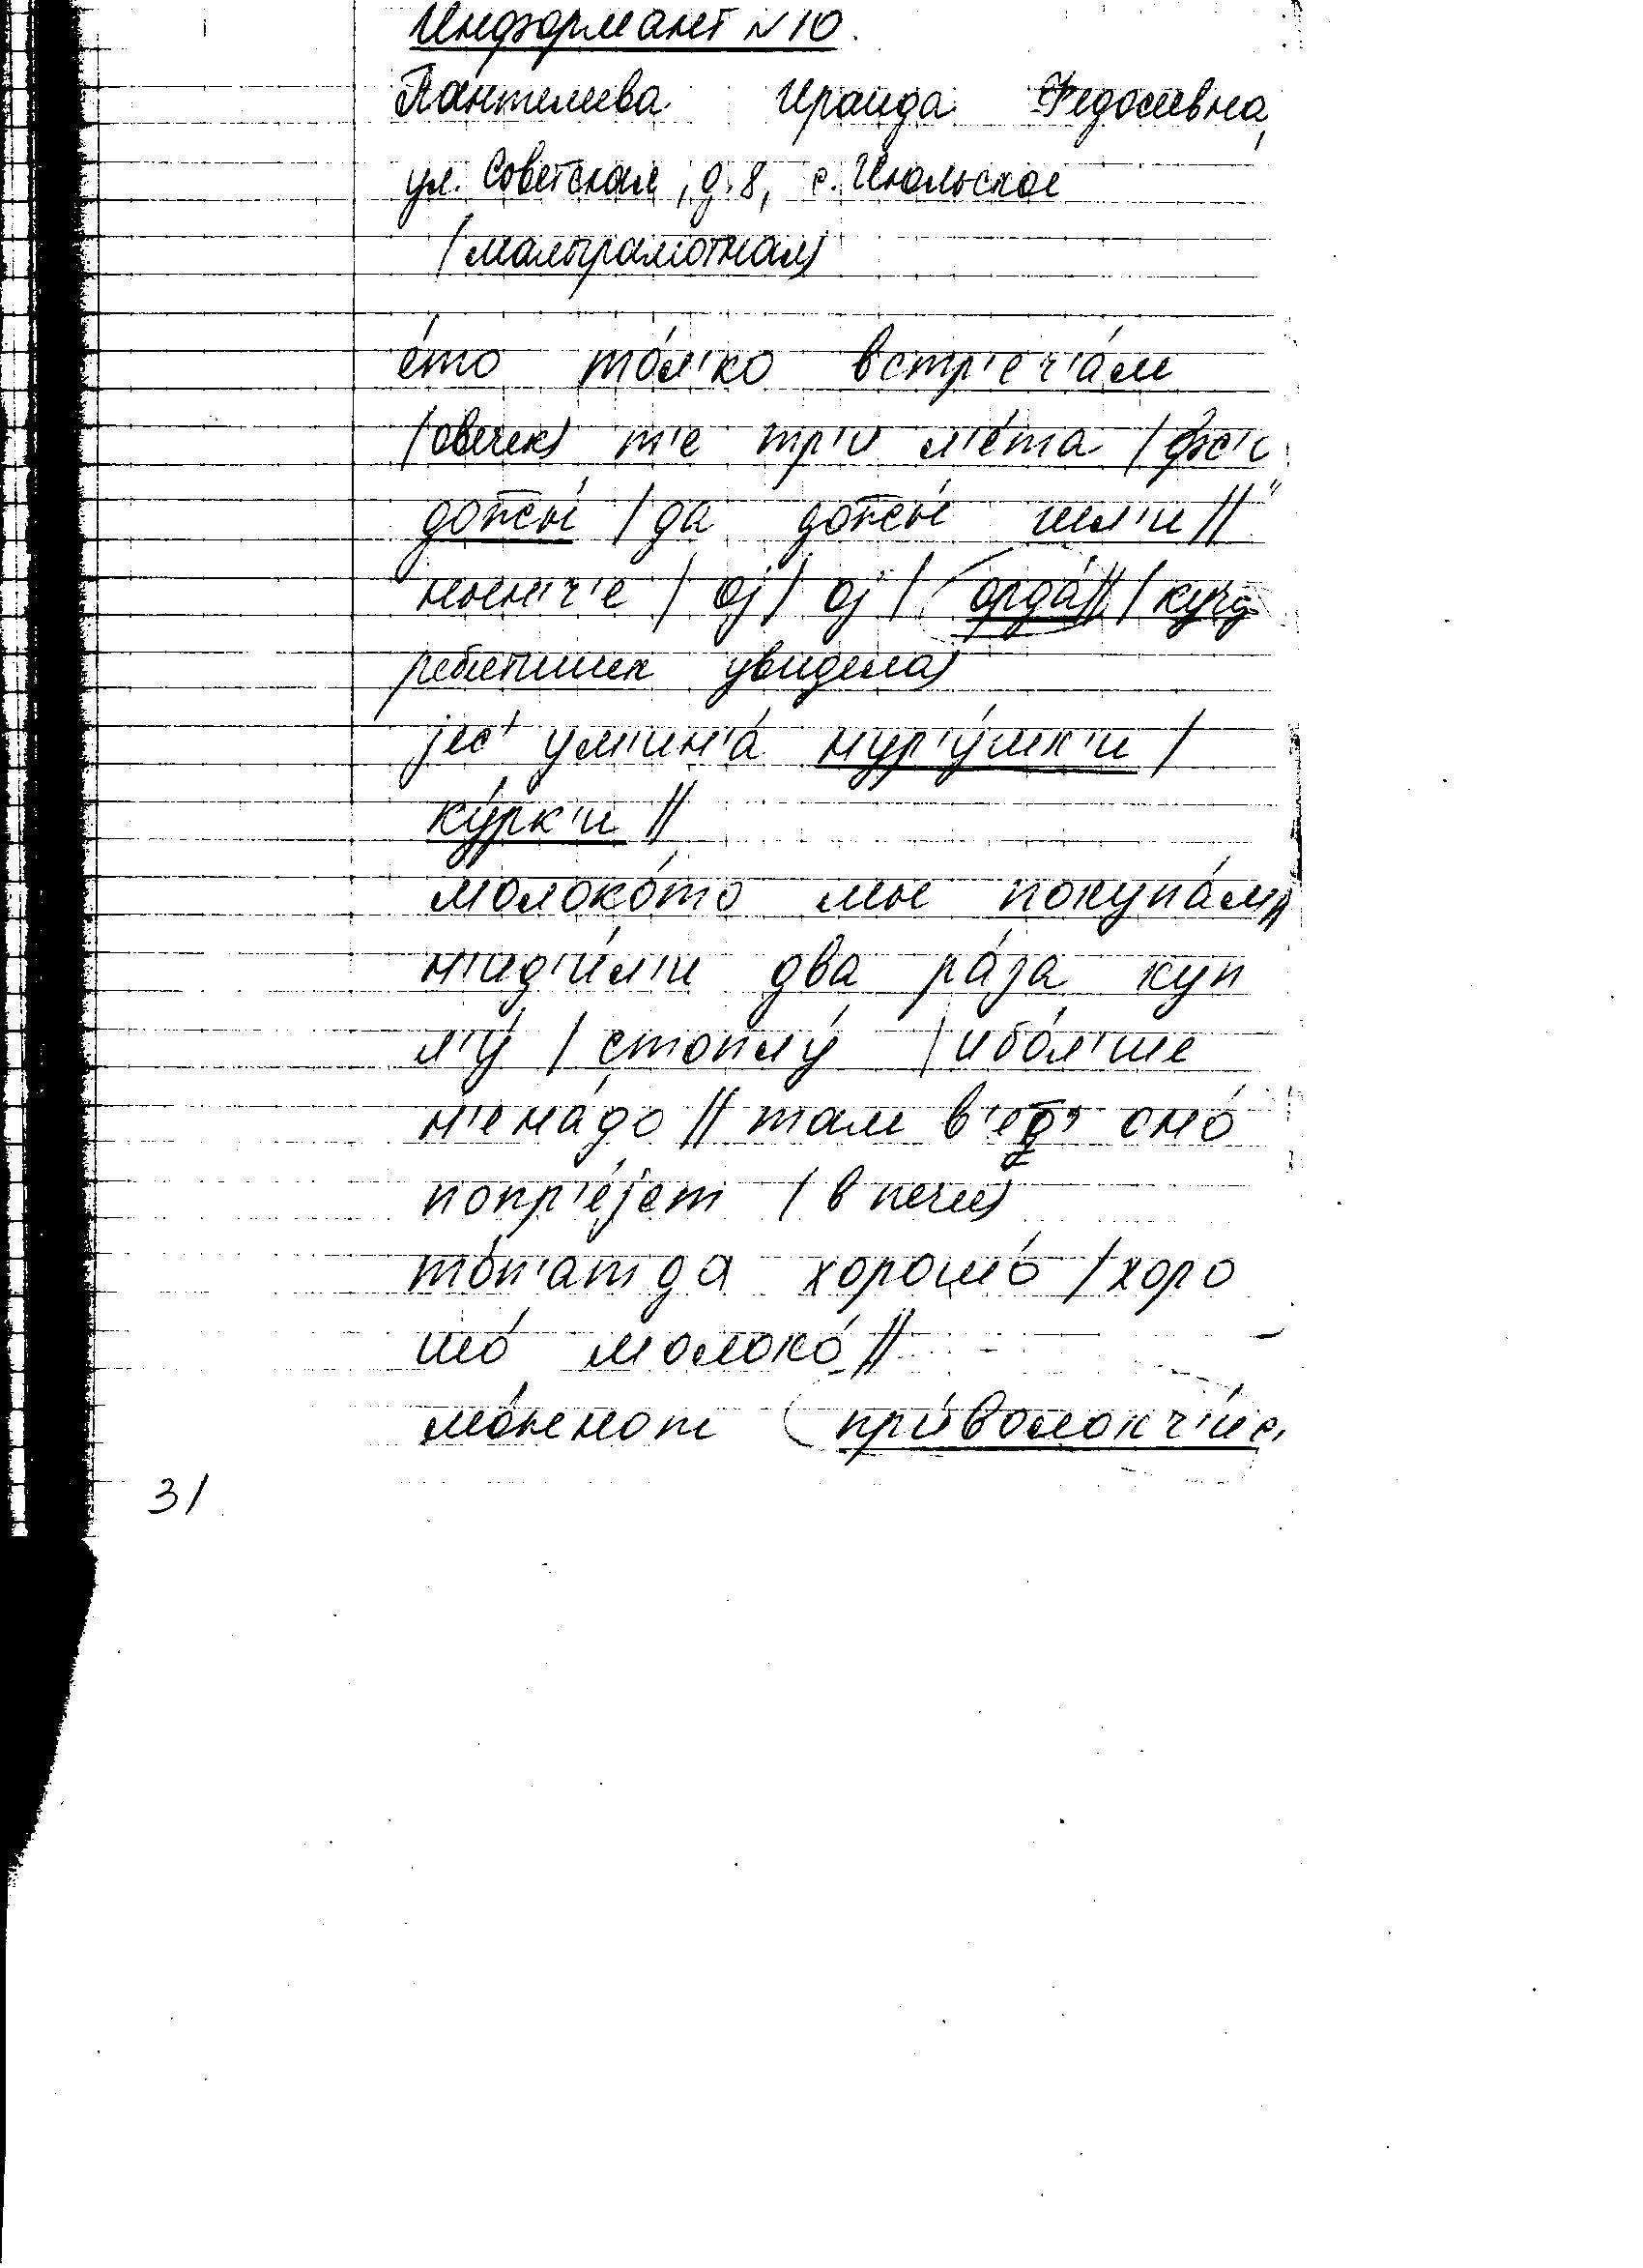 Информант №10.
Пантелеева Ираида Федосеевна,
ул. Советская, д. 8, с. Июльское
(малограмотная)
е́то то́л'ко встр'еч'а́м
(овечек) т'е тр'и л'е́та /
дожы́ / да дожы́ шл'и //
нын'ч'е / оj / оj / орда́ // (кучу
ребятишек увидела)
jес' ум'ин'а́ мур'у́шк'и /
ку́рк'и //
молоко́то мы покупа́м //
н'ид'и́л'и два ра́за куп
л'у́ / стоплу́ / и бо́л'ше
н'ена́до // там в'ед' оно́
попр'е́jет (в печи)
то́п'ат да хорошо́ / хоро
шо́ молоко́ //
мо́жмот пр'иволокч'и́с'
31